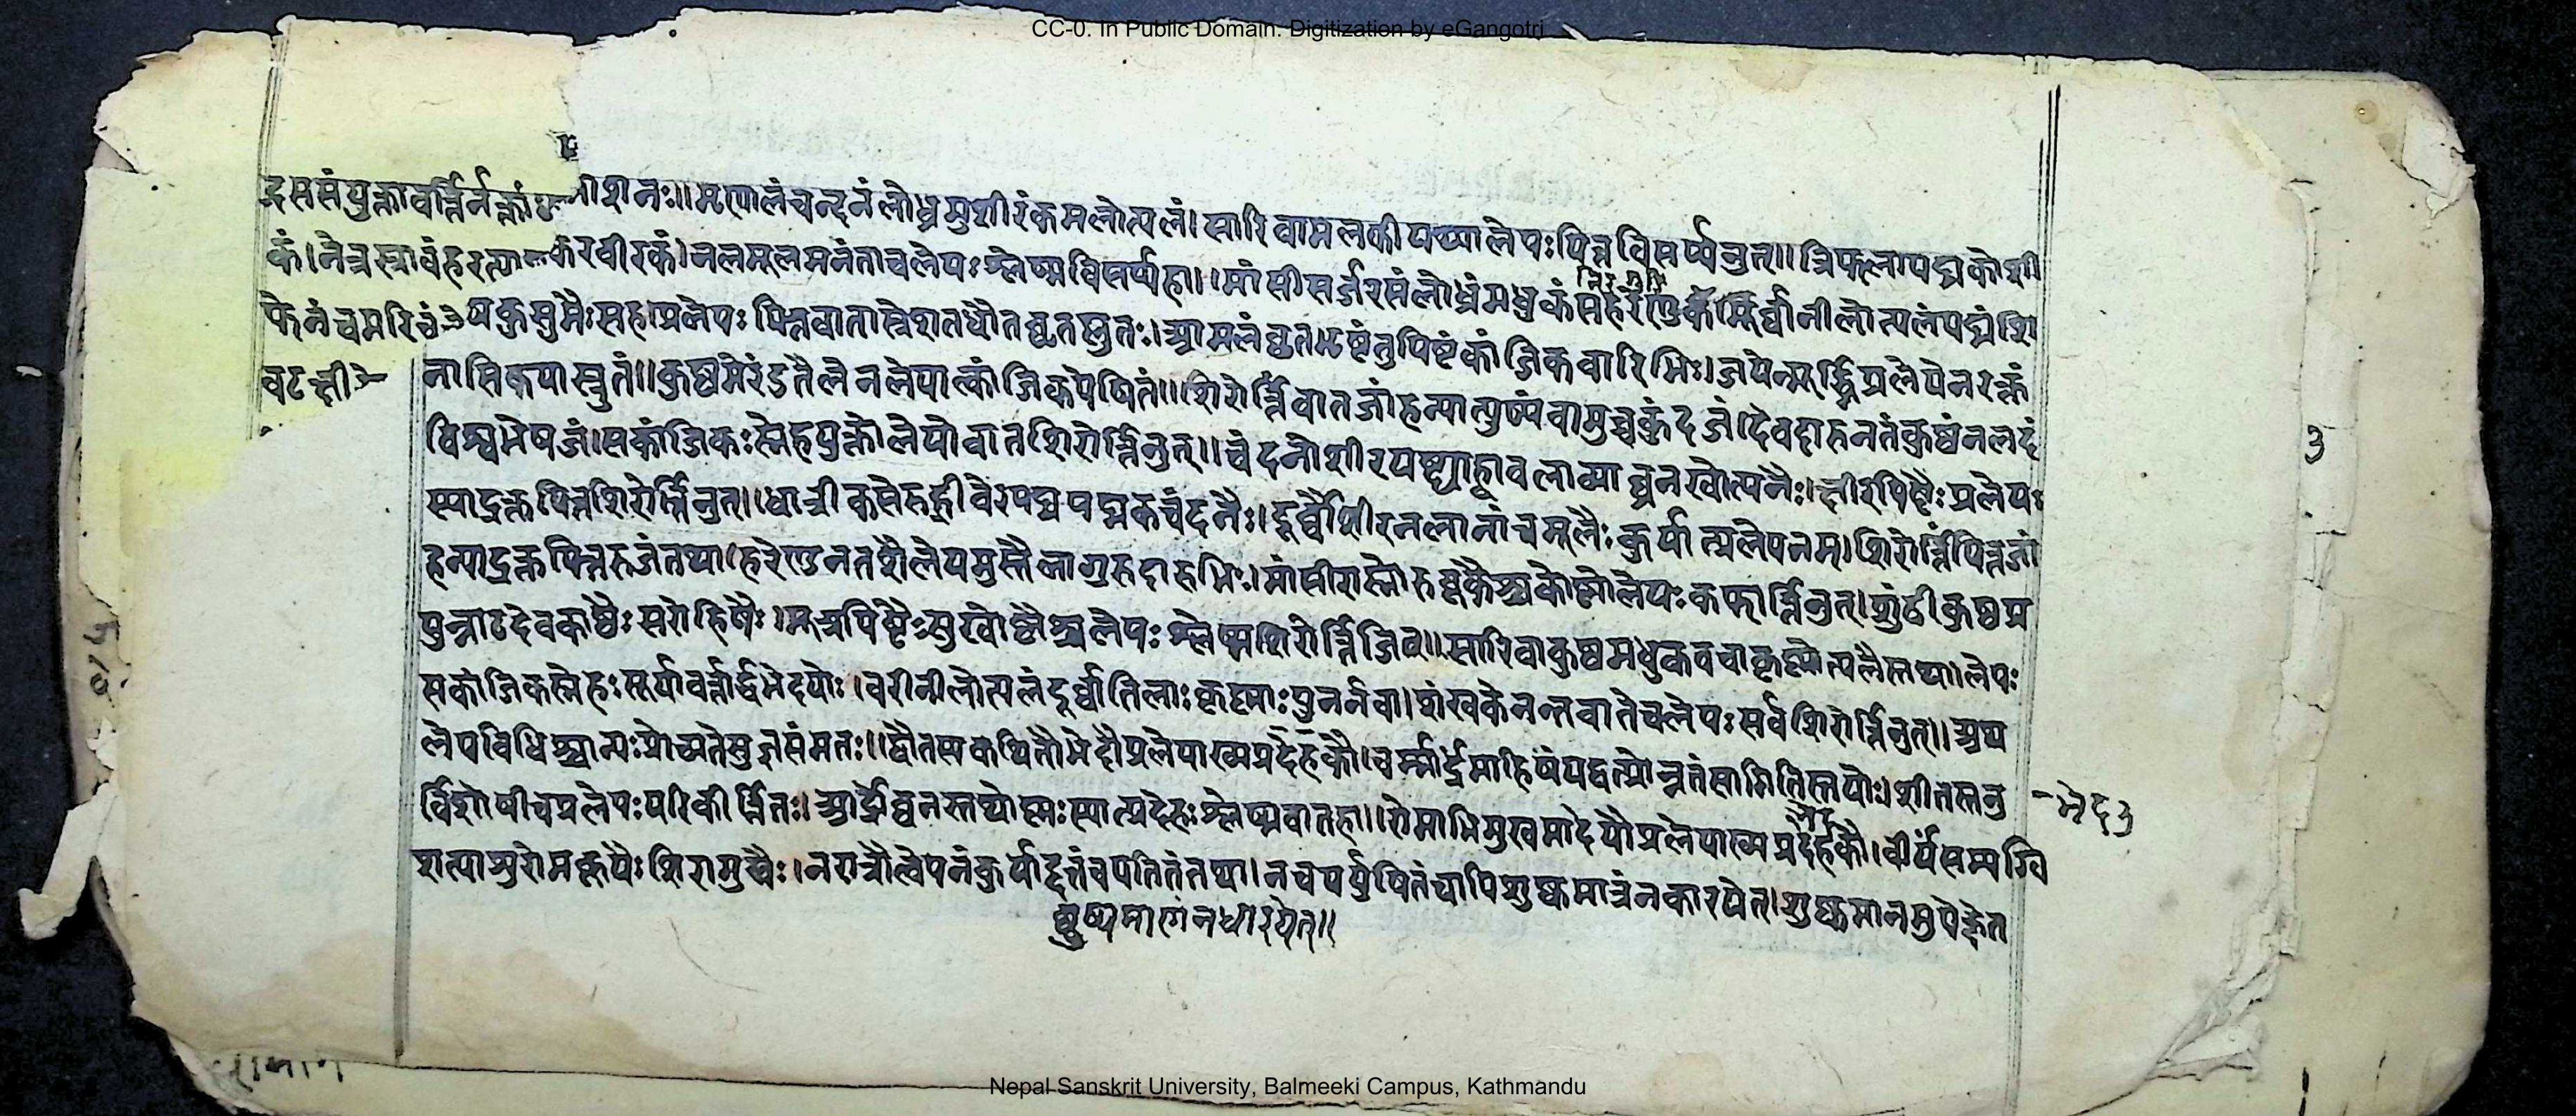 CC-0. In Public Domain. Digitization by eGangotri
शनः।।मृणालंचन्दनंलोध्रमुशीरंकमलोत्पलं।सारिवामलकीपथ्यालेपःपित्तविसर्प्पनुत्।।त्रिफलापद्मकोशी
करवीरकं।नलमूलमनंताचलेपःश्लेष्मविसर्प्पहा।।मांसीसर्ज्जरसंलोध्रंमधुकंसहरेणुकं।मूर्व्वानीलोत्पलंपद्मंशि
फेनंचमरिचं कुसुमैःसह।प्रलेपःपित्तवातास्रेशतधौतघृतप्लुतः।आमलंघृतभृष्टंतुपिष्टंकांजिकवारिभिः।जयेन्मूर्द्ध्निप्रलेपेनरक्तं
नासिकयास्रुतं।।कुष्ठमेरंडतैलेनलेपात्कांजिकपेषितं।।शिरोर्त्तिंवातजांहन्यात्पुष्पंवामुचुकुंदजं।देवदारुनतंकुष्ठंनलदं
विश्वभेषजं।सकांजिकःस्नेहयुक्तोलेपोवातशिरोर्त्तिनुत्।।चंदनोशीरयष्ट्याह्वबलाव्याघ्रनखोत्पलैः।क्षीरपिष्टैःप्रलेपः
स्याद्रक्तपित्तशिरोर्त्तिनुत्।धात्रीकसेरुह्रीवेरपद्मपद्मकचंदनैः।दूर्व्वोशीरनलानांचमूलैःकुर्यात्प्रलेपनम्।शिरोर्त्तिंपित्तजां
हन्याद्रक्तपित्तरुजंतथा।हरेणुनतशैलेयमुस्तैलागुरुदारुभिः।मांसीरास्नोरुबूकैश्चकोष्णोलेपःकफार्त्तिनुत्।शुंठीकुष्ठप्र
पुन्नाटदेवकाष्ठैःसरोहिषैः।मूत्रपिष्टैःसुखोष्णैश्चलेपःश्लेष्मशिरोर्त्तिजित्।।सारिवाकुष्ठमधुकवचाकृष्णोत्पलैस्तथा।लेपः
सकांजिकस्नेहःसूर्यावर्त्तार्द्धभेदयोः।वरीनीलोत्पलंदूर्व्वातिलाःकृष्णाःपुनर्नवा।शंखकेनन्तवातेचलेपःसर्वशिरोर्त्तिनुत्।।अथ
लेपविधिश्चान्यःप्रोच्यतेसुज्ञसंमतः।।द्वौतसकथितौभेदौप्रलेपाख्यप्रदेहकौ।चर्म्मार्द्रंमाहिषंयद्वत्प्रोन्नतंसामितिस्तयोः।शीतस्तनु
र्विशोषीचप्रलेपःपरिकीर्त्तितः।आर्द्रोघनस्तथोष्णःस्यात्प्रदेहःश्लेष्मवातहा।।रोमाभिमुखमादेयौप्रलेपाख्यप्रदेहकौ।वीर्यंसम्यग्वि
शत्याशुरोमकूपैःशिरामुखैः।नरात्रौलेपनंकुर्याद्दत्तंचपतितंतथा।नचपर्युषितंचापिशुष्कमात्रंनकारयेत्।शुष्कमानमुपेक्षेत
शुष्यमाणंनधारयेत्।।
3
Nepal Sanskrit University, Balmeeki Campus, Kathmandu